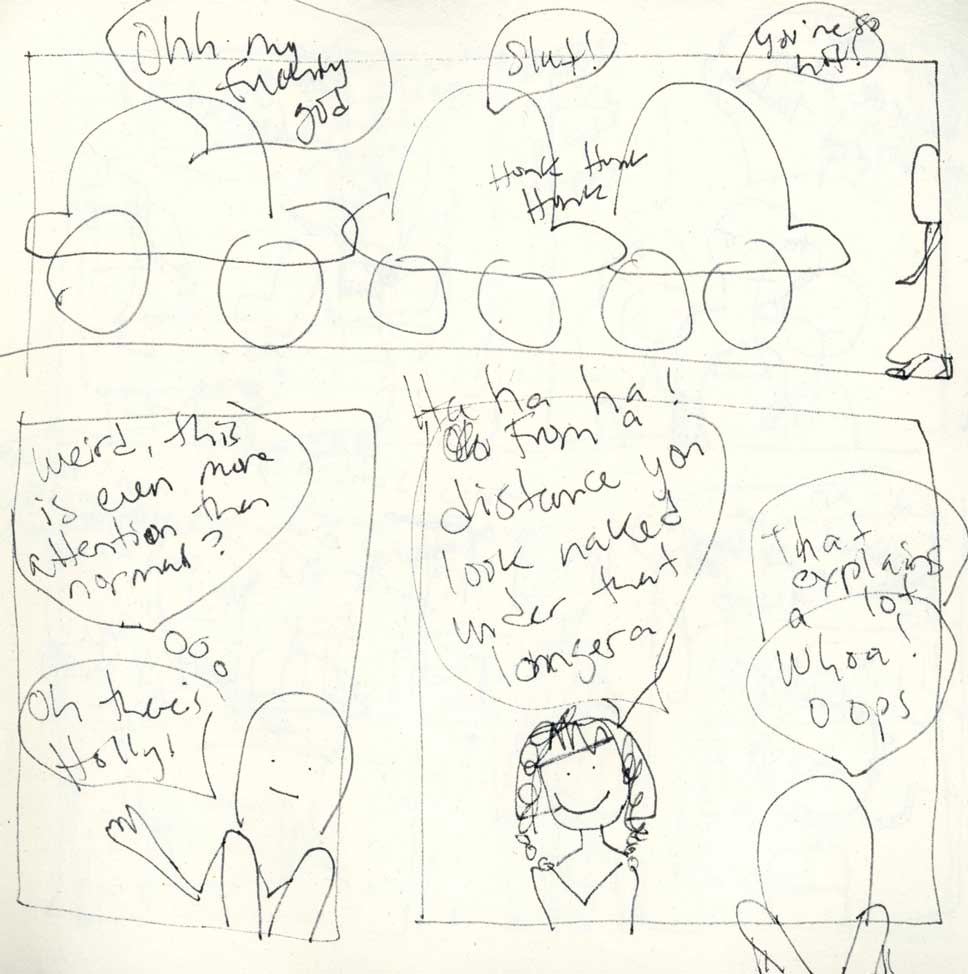 Ohh my
fucking
god
Slut!
you're so
hot!
Honk Honk
Honk
weird, this
is even more
attention than
normal?
Oh there's
Holly!
Ha ha ha!
From a
distance you
look naked
under that
That
explains
a lot
Whoa!
oops